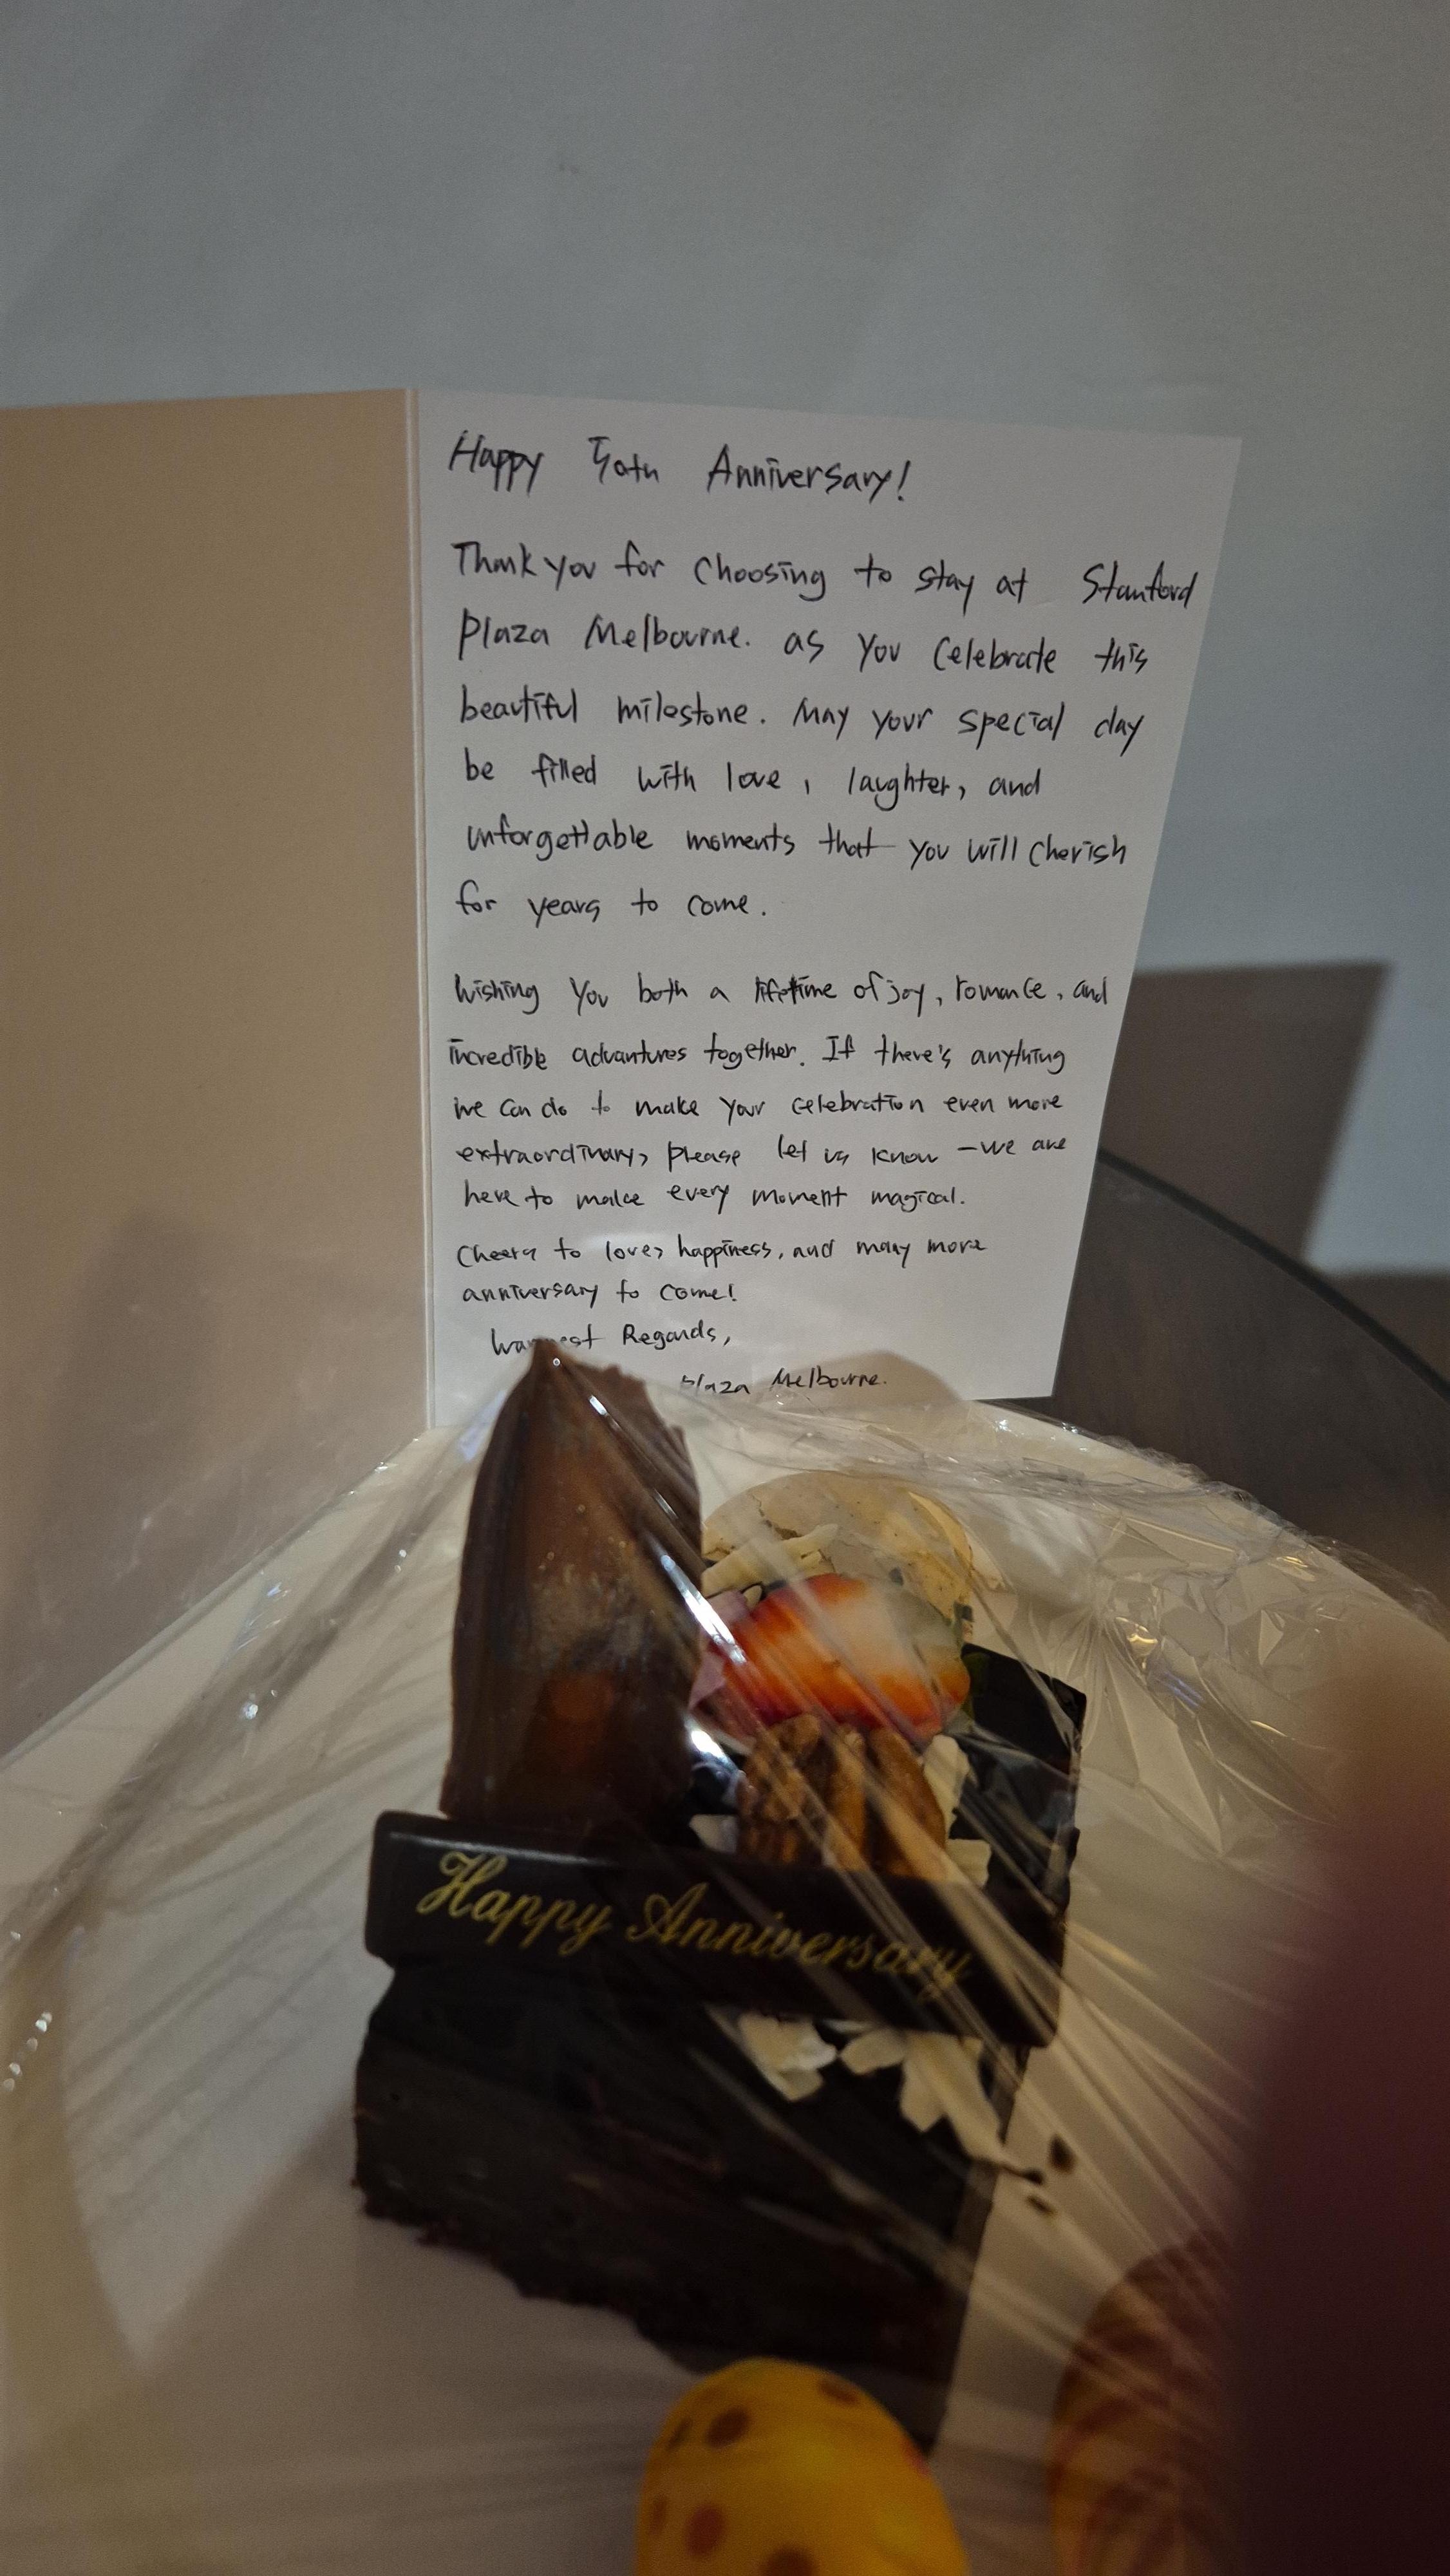 Happy 50th Anniversary!
Thank you for choosing to stay at Stanford
Plaza Melbourne. as you celebrate this
beautiful milestone. May your special day
be filled with love, laughter, and
unforgettable moments that you will cherish
for years to come.
Wishing you both a lifetime of joy, romance, and
incredible advantures together. If there's anything
we can do to make your celebration even more
extraordinary, please let us know - we are
here to make every moment magical.
Cheers to love, happiness, and many more
anniversary to come!
Regards,
Plaza Melbourne.
Happy Anniversary